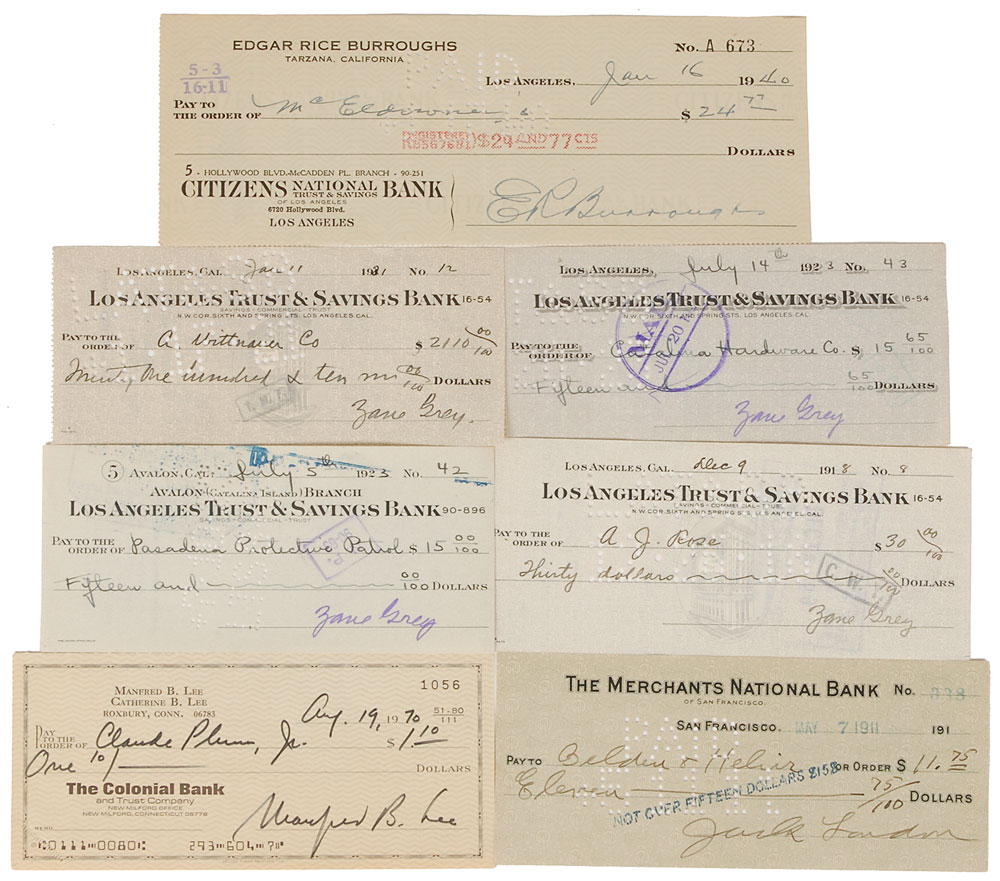 EDGAR RICE BURROUGHS
TARZANA, CALIFORNIA
No. A 673
5-3
16-11
LOS ANGELES, Jan 16 1940
PAY TO
THE ORDER OF
$ 24 77
REGISTERED $24 AND 77 CTS
DOLLARS
5 - HOLLYWOOD BLVD.-McCADDEN PL. BRANCH - 90-251
CITIZENS NATIONAL TRUST & SAVINGS BANK
OF LOS ANGELES
6720 Hollywood Blvd.
LOS ANGELES
ER Burroughs
LOS ANGELES, CAL. Jan 11 No. 12
LOS ANGELES TRUST & SAVINGS BANK 16-54
SAVINGS - COMMERCIAL - TRUST
N.W. COR. SIXTH AND SPRING STS. LOS ANGELES, CAL.
PAY TO THE
ORDER OF A. Wittnauer Co $ 2110 00/100
hundred & ten 00/100 DOLLARS
Zane Grey.
LOS ANGELES, July 14th 1923 No. 43
LOS ANGELES TRUST & SAVINGS BANK 16-54
N.W. COR. SIXTH AND SPRING STS. LOS ANGELES, CAL.
PAY TO THE
ORDER OF Catalina Hardware Co. $ 15 65/100
Fifteen and 65/100 DOLLARS
Zane Grey
5 AVALON, CAL. July 5th 1923 No. 42
AVALON (CATALINA ISLAND) BRANCH
LOS ANGELES TRUST & SAVINGS BANK 90-896
SAVINGS - COMMERCIAL - TRUST
PAY TO THE
ORDER OF Pasadena Protective Patrol $ 15 00/100
Fifteen and 00/100 DOLLARS
Zane Grey
LOS ANGELES, CAL. Dec 9 1918 No. 8
LOS ANGELES TRUST & SAVINGS BANK 16-54
SAVINGS - COMMERCIAL - TRUST
N.W. COR. SIXTH AND SPRING STS. LOS ANGELES, CAL.
PAY TO THE
ORDER OF A J. Rose $ 30 00/100
Thirty dollars 00/100 DOLLARS
C. W.
Zane Grey
MANFRED B. LEE
CATHERINE B. LEE
ROXBURY, CONN. 06783
1056
Aug. 19, 1970
51-80
111
PAY
TO THE
ORDER OF Claude Plum, Jr. $ 1 10
One 10/ DOLLARS
The Colonial Bank
and Trust Company
NEW MILFORD OFFICE
NEW MILFORD, CONNECTICUT 06776
MEMO
Manfred B. Lee
0111 0080 293 604 7
THE MERCHANTS NATIONAL BANK No. 338
OF SAN FRANCISCO.
SAN FRANCISCO, MAY 7 1911 191
PAY TO Belden & OR ORDER $ 11.75
Eleven 75/100 DOLLARS
NOT OVER FIFTEEN DOLLARS $15$
Jack London